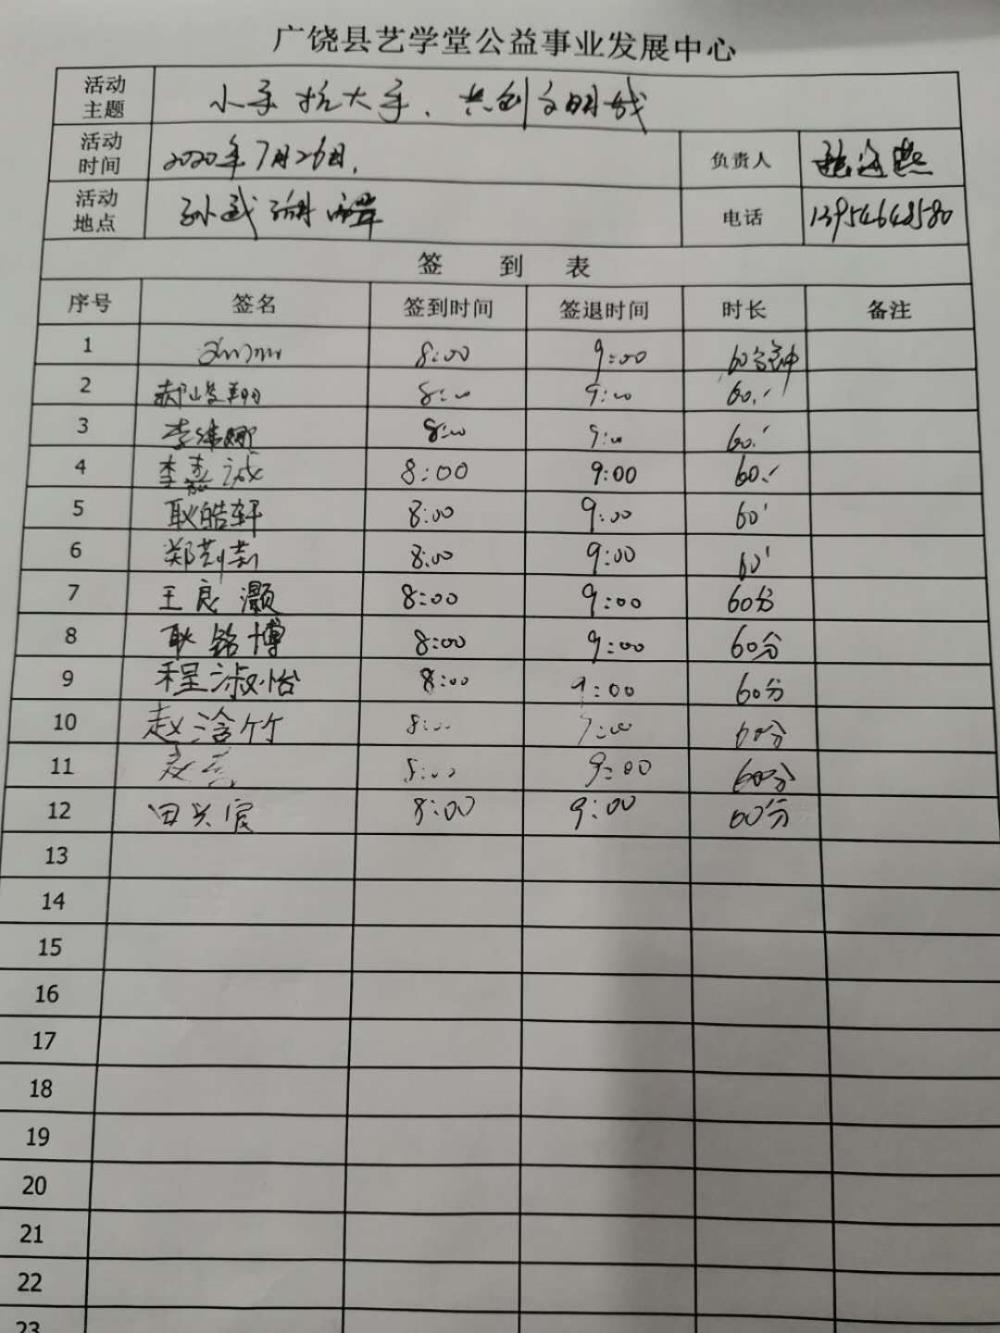 广饶县艺学堂公益事业发展中心
活动主题 小手拉大手、共创文明城
活动时间 2020年7月26日. 负责人
活动地点 孙武湖 电话 13954648580
签 到 表
序号 签名 签到时间 签退时间 时长 备注
1 8:00 9:00 60分钟
2 郝峻翔 8:00 9:00 60.′
3 李维娜 8:00 9:00 60.′
4 李嘉诚 8:00 9:00 60.′
5 耿皓轩 8:00 9:00 60′
6 8:00 9:00 60′
7 王良灏 8:00 9:00 60分
8 耿铭博 8:00 9:00 60分
9 程淑怡 8:00 9:00 60分
10 赵浛竹 8:00 9:00 60分
11 8:00 9:00 60分
12 田兴宸 8:00 9:00 60分
13
14
15
16
17
18
19
20
21
22
23